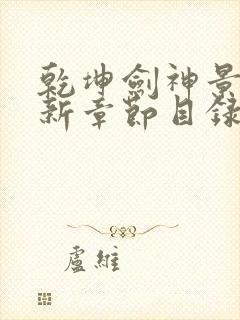 乾坤劍神景
新章節目錄
盧維